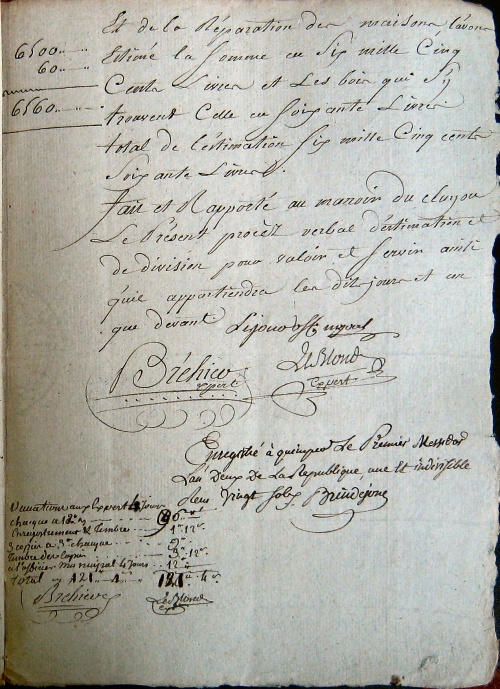 Et de la Réparation des maisons l'avons
6500
Estimé la Somme en Six mille Cinq
60
Cents Livres et Les bois qui S'y
6560
trouvent Celle en Soixante Livres
total de l'estimation Six mille Cinq cents
Soixante Livres.
fait et Rapporté au manoir du
Le Présent procez verbal d'estimation et
de division pour valoir et Servir ainsi
qu'il appartiendra les dits jours et an
que devant.
Bréhier
expert
LeBlond
Expert
Enregistré à quimper Le Premier Messidor
L'an Deux de La Republique, une Et indivisible
Vingt Sols
Vacations aux Expert 4 jours
chaque a
Enregistrement & timbre
3 copies a 3# chaque
timbre des copies
a l'officier municipal 4 jours 12
total 121 4
Bréhier
LeBlond
expt